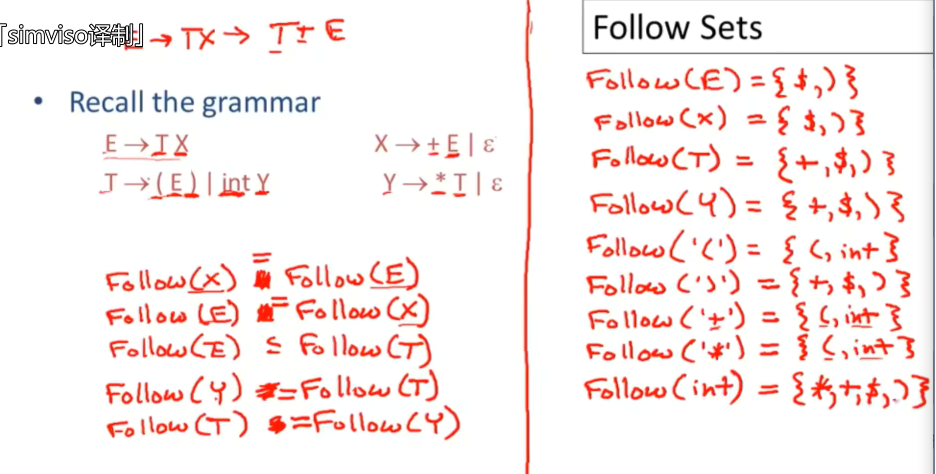 「simviso译制」
E → TX → T + E
• Recall the grammar
E → T X    X → + E | ε
T → ( E ) | int Y    Y → * T | ε
Follow(X) = Follow(E)
Follow(E) = Follow(X)
Follow(E) ⊆ Follow(T)
Follow(Y) = Follow(T)
Follow(T) = Follow(Y)
Follow Sets
Follow(E) = { $, ) }
Follow(X) = { $, ) }
Follow(T) = { +, $, ) }
Follow(Y) = { +, $, ) }
Follow('(') = { (, int }
Follow(')') = { +, $, ) }
Follow('+') = { (, int }
Follow('*') = { (, int }
Follow(int) = { *, +, $, ) }